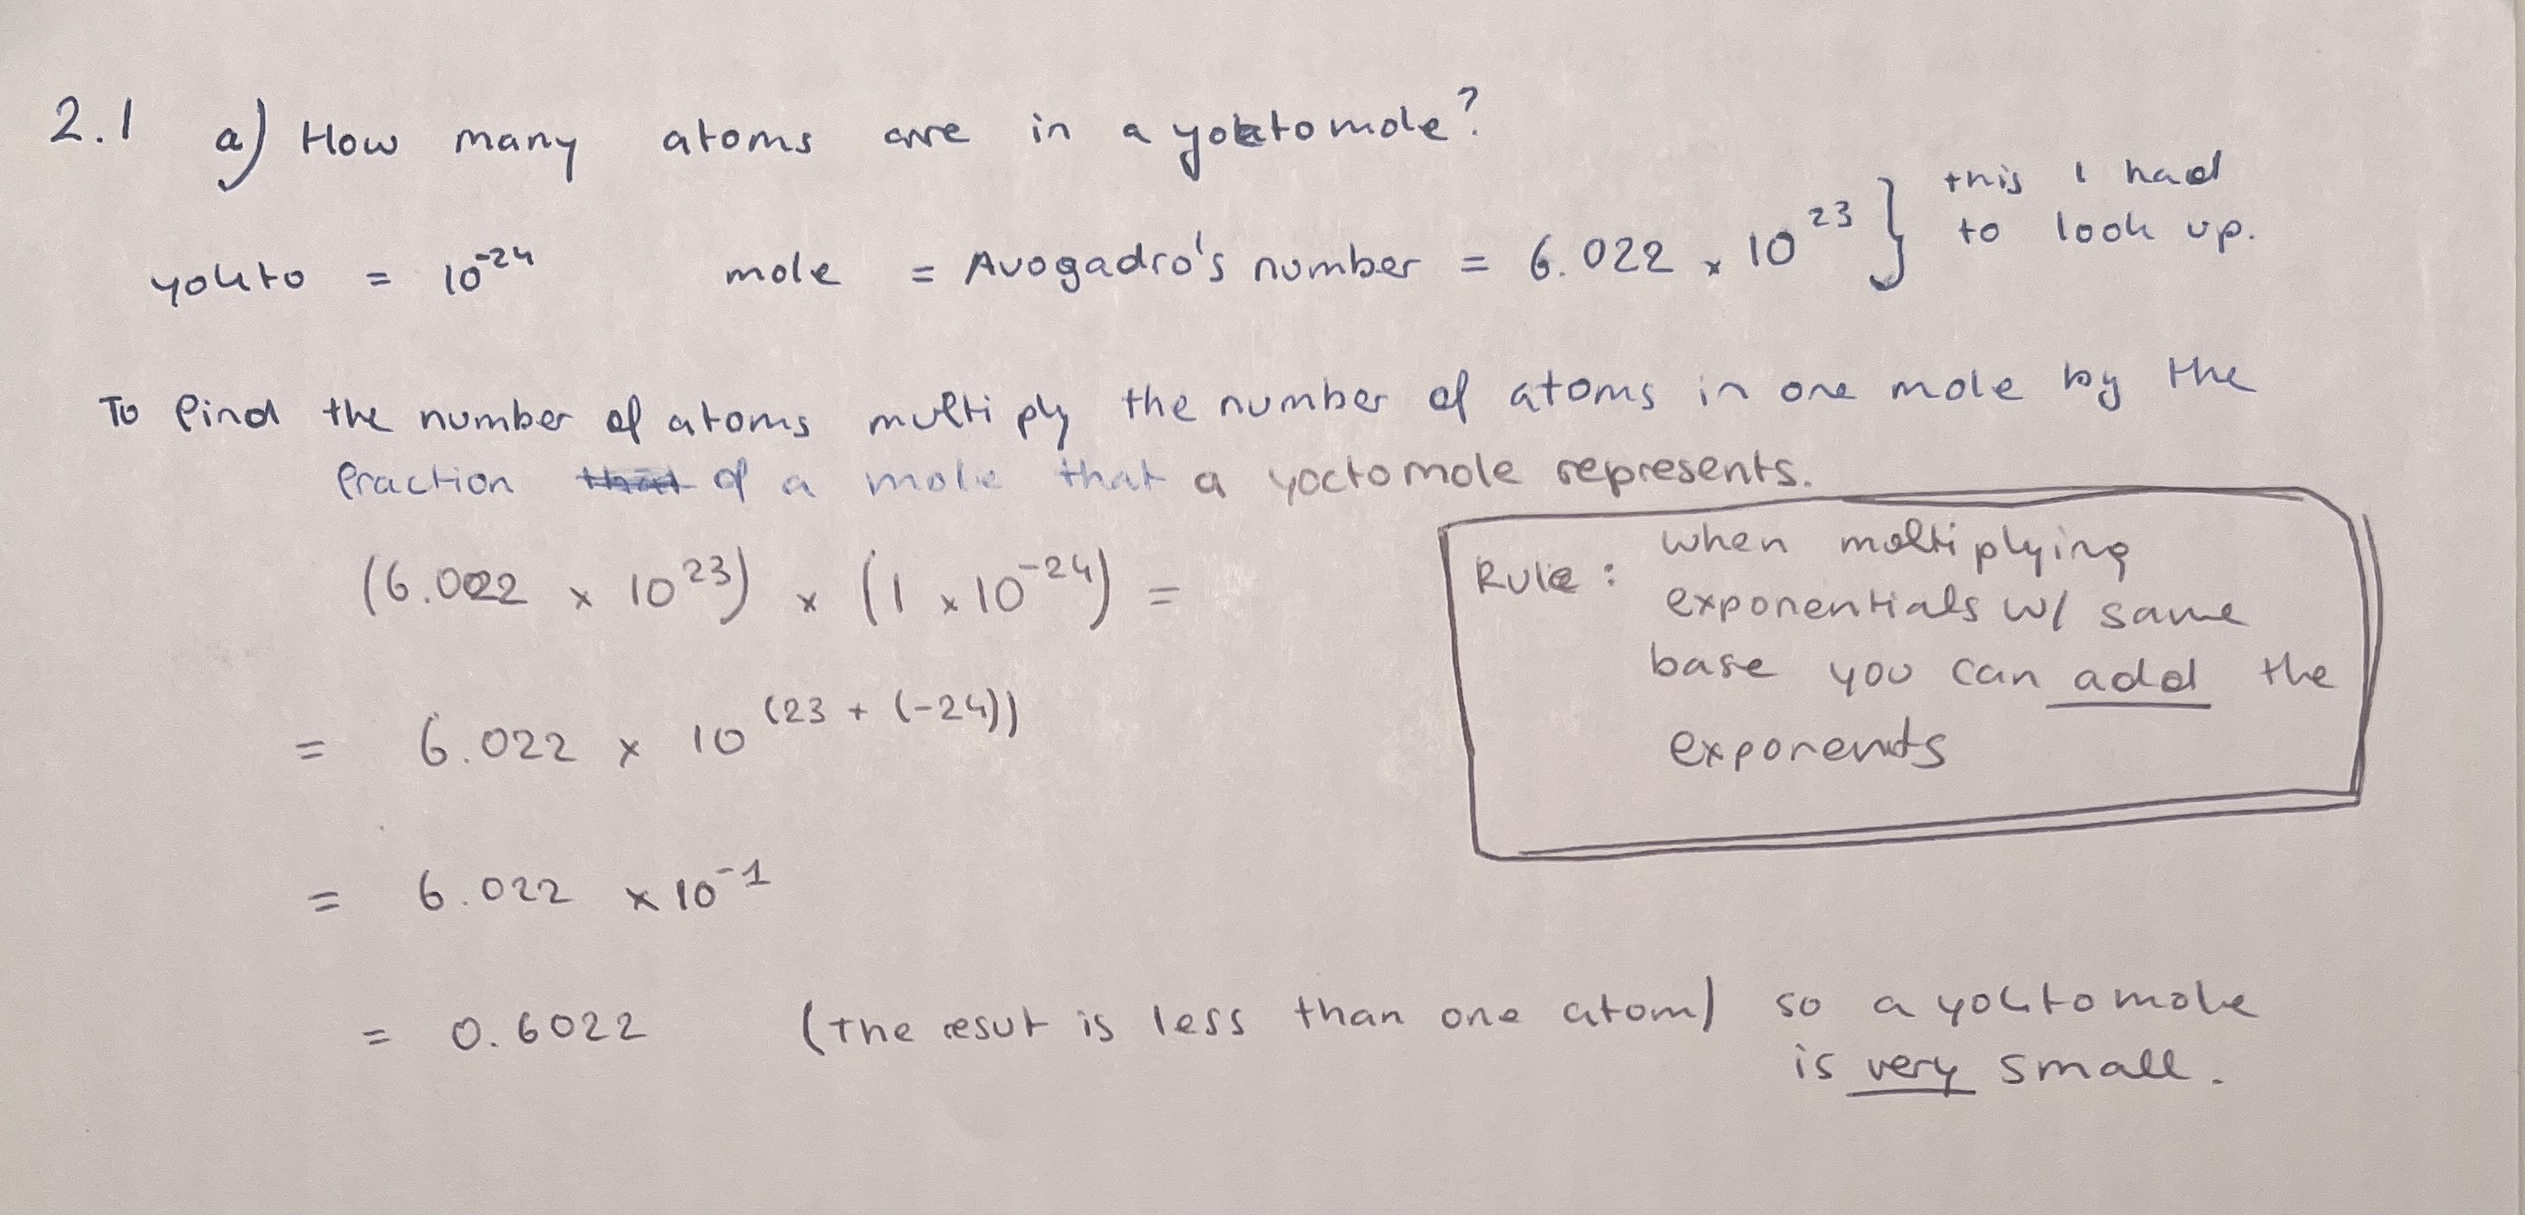 2.1 a) How many atoms are in a yoktomole?
yokto = 10⁻²⁴ mole = Avogadro's number = 6.022 × 10²³ } this I had
to look up.
To find the number of atoms multiply the number of atoms in one mole by the
fraction of a mole that a yoctomole represents.
(6.022 × 10²³) × (1 × 10⁻²⁴) =
= 6.022 × 10^(23 + (-24))
= 6.022 × 10⁻¹
Rule: when multiplying
exponentials w/ same
base you can add the
exponents
= 0.6022 (The resut is less than one atom) so a yoktomole
is very small.